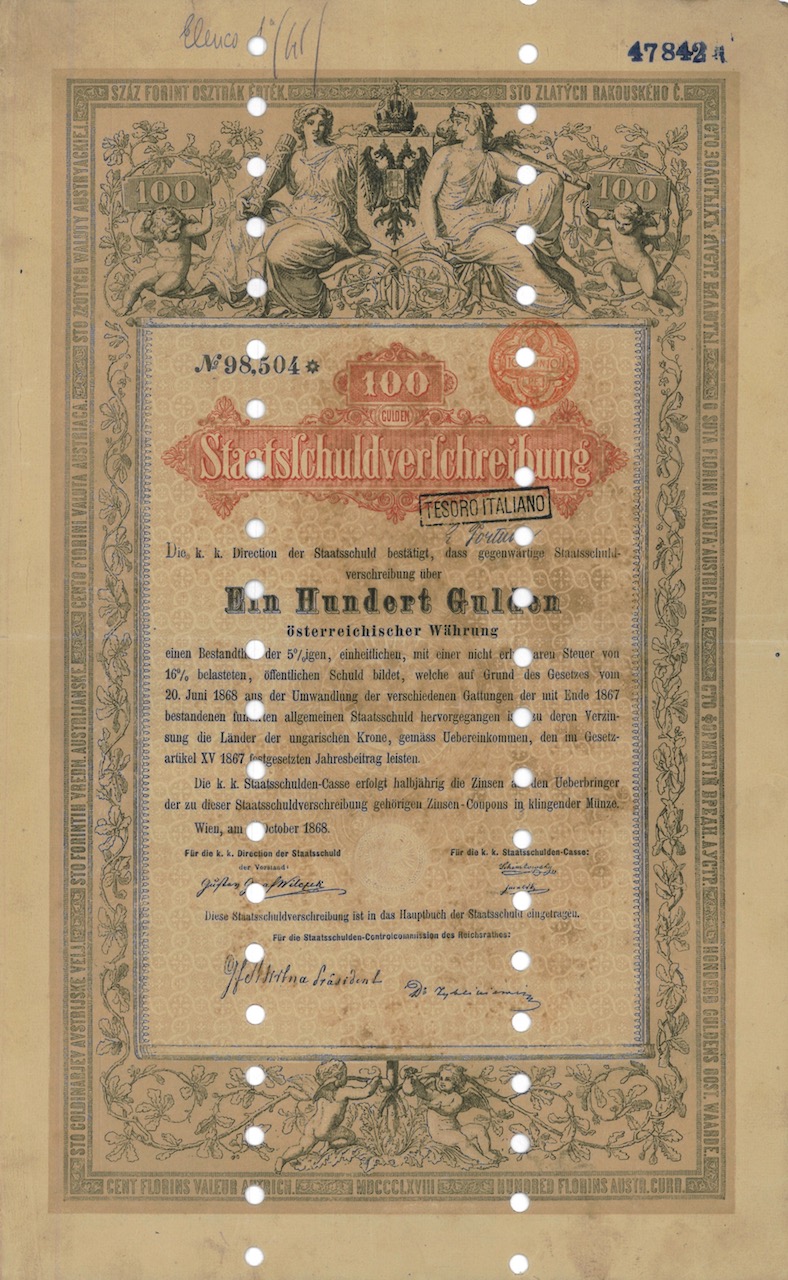 Elenco 1°
47842
SZÁZ FORINT OSZTRÁK ÉRTÉK.
STO ZLATÝCH RAKOUSKÉHO Č.
100
100
STO ZŁOTYCH WALUTY AUSTRYACKIEJ.
CENTO FIORINI VALUTA AUSTRIACA.
STO FORINTIH VREDN. AUSTRIJANSKE.
STO GOLDINARJEV AVSTRIJSKE VELJ.
О SUTA FLORINI VALUTA AUSTRIEANA.
HONDERD GULDENS OOST. WAARDE.
№ 98,504
100
GULDEN
Staatsschuldverschreibung
TESORO ITALIANO
Die k. k. Direction der Staatsschuld bestätigt, dass gegenwärtige Staatsschuld-
verschreibung über
Ein Hundert Gulden
österreichischer Währung
einen Bestandth der 5%igen, einheitlichen, mit einer nicht er aren Steuer von
16% belasteten, öffentlichen Schuld bildet, welche auf Grund des Gesetzes vom
20. Juni 1868 aus der Umwandlung der verschiedenen Gattungen der mit Ende 1867
bestandenen fundirten allgemeinen Staatsschuld hervorgegangen zu deren Verzin-
sung die Länder der ungarischen Krone, gemäss Uebereinkommen, den im Gesetz-
artikel XV 1867 festgesetzten Jahresbeitrag leisten.
Die k. k. Staatsschulden-Casse erfolgt halbjährig die Zinsen den Ueberbringer
der zu dieser Staatsschuldverschreibung gehörigen Zinsen-Coupons in klingender Münze.
Wien, am October 1868.
Für die k. k. Direction der Staatsschuld
der Vorstand:
Für die k. k. Staatsschulden-Casse:
Gustav Graf Wilczek
Diese Staatsschuldverschreibung ist in das Hauptbuch der Staatsschuld eingetragen.
Für die Staatsschulden-Controlcommission des Reichsrathes:
Präsident
Dr
CENT FLORINS VALEUR AUTRICH.
MDCCCLXVIII
HUNDRED FLORINS AUSTR. CURR.